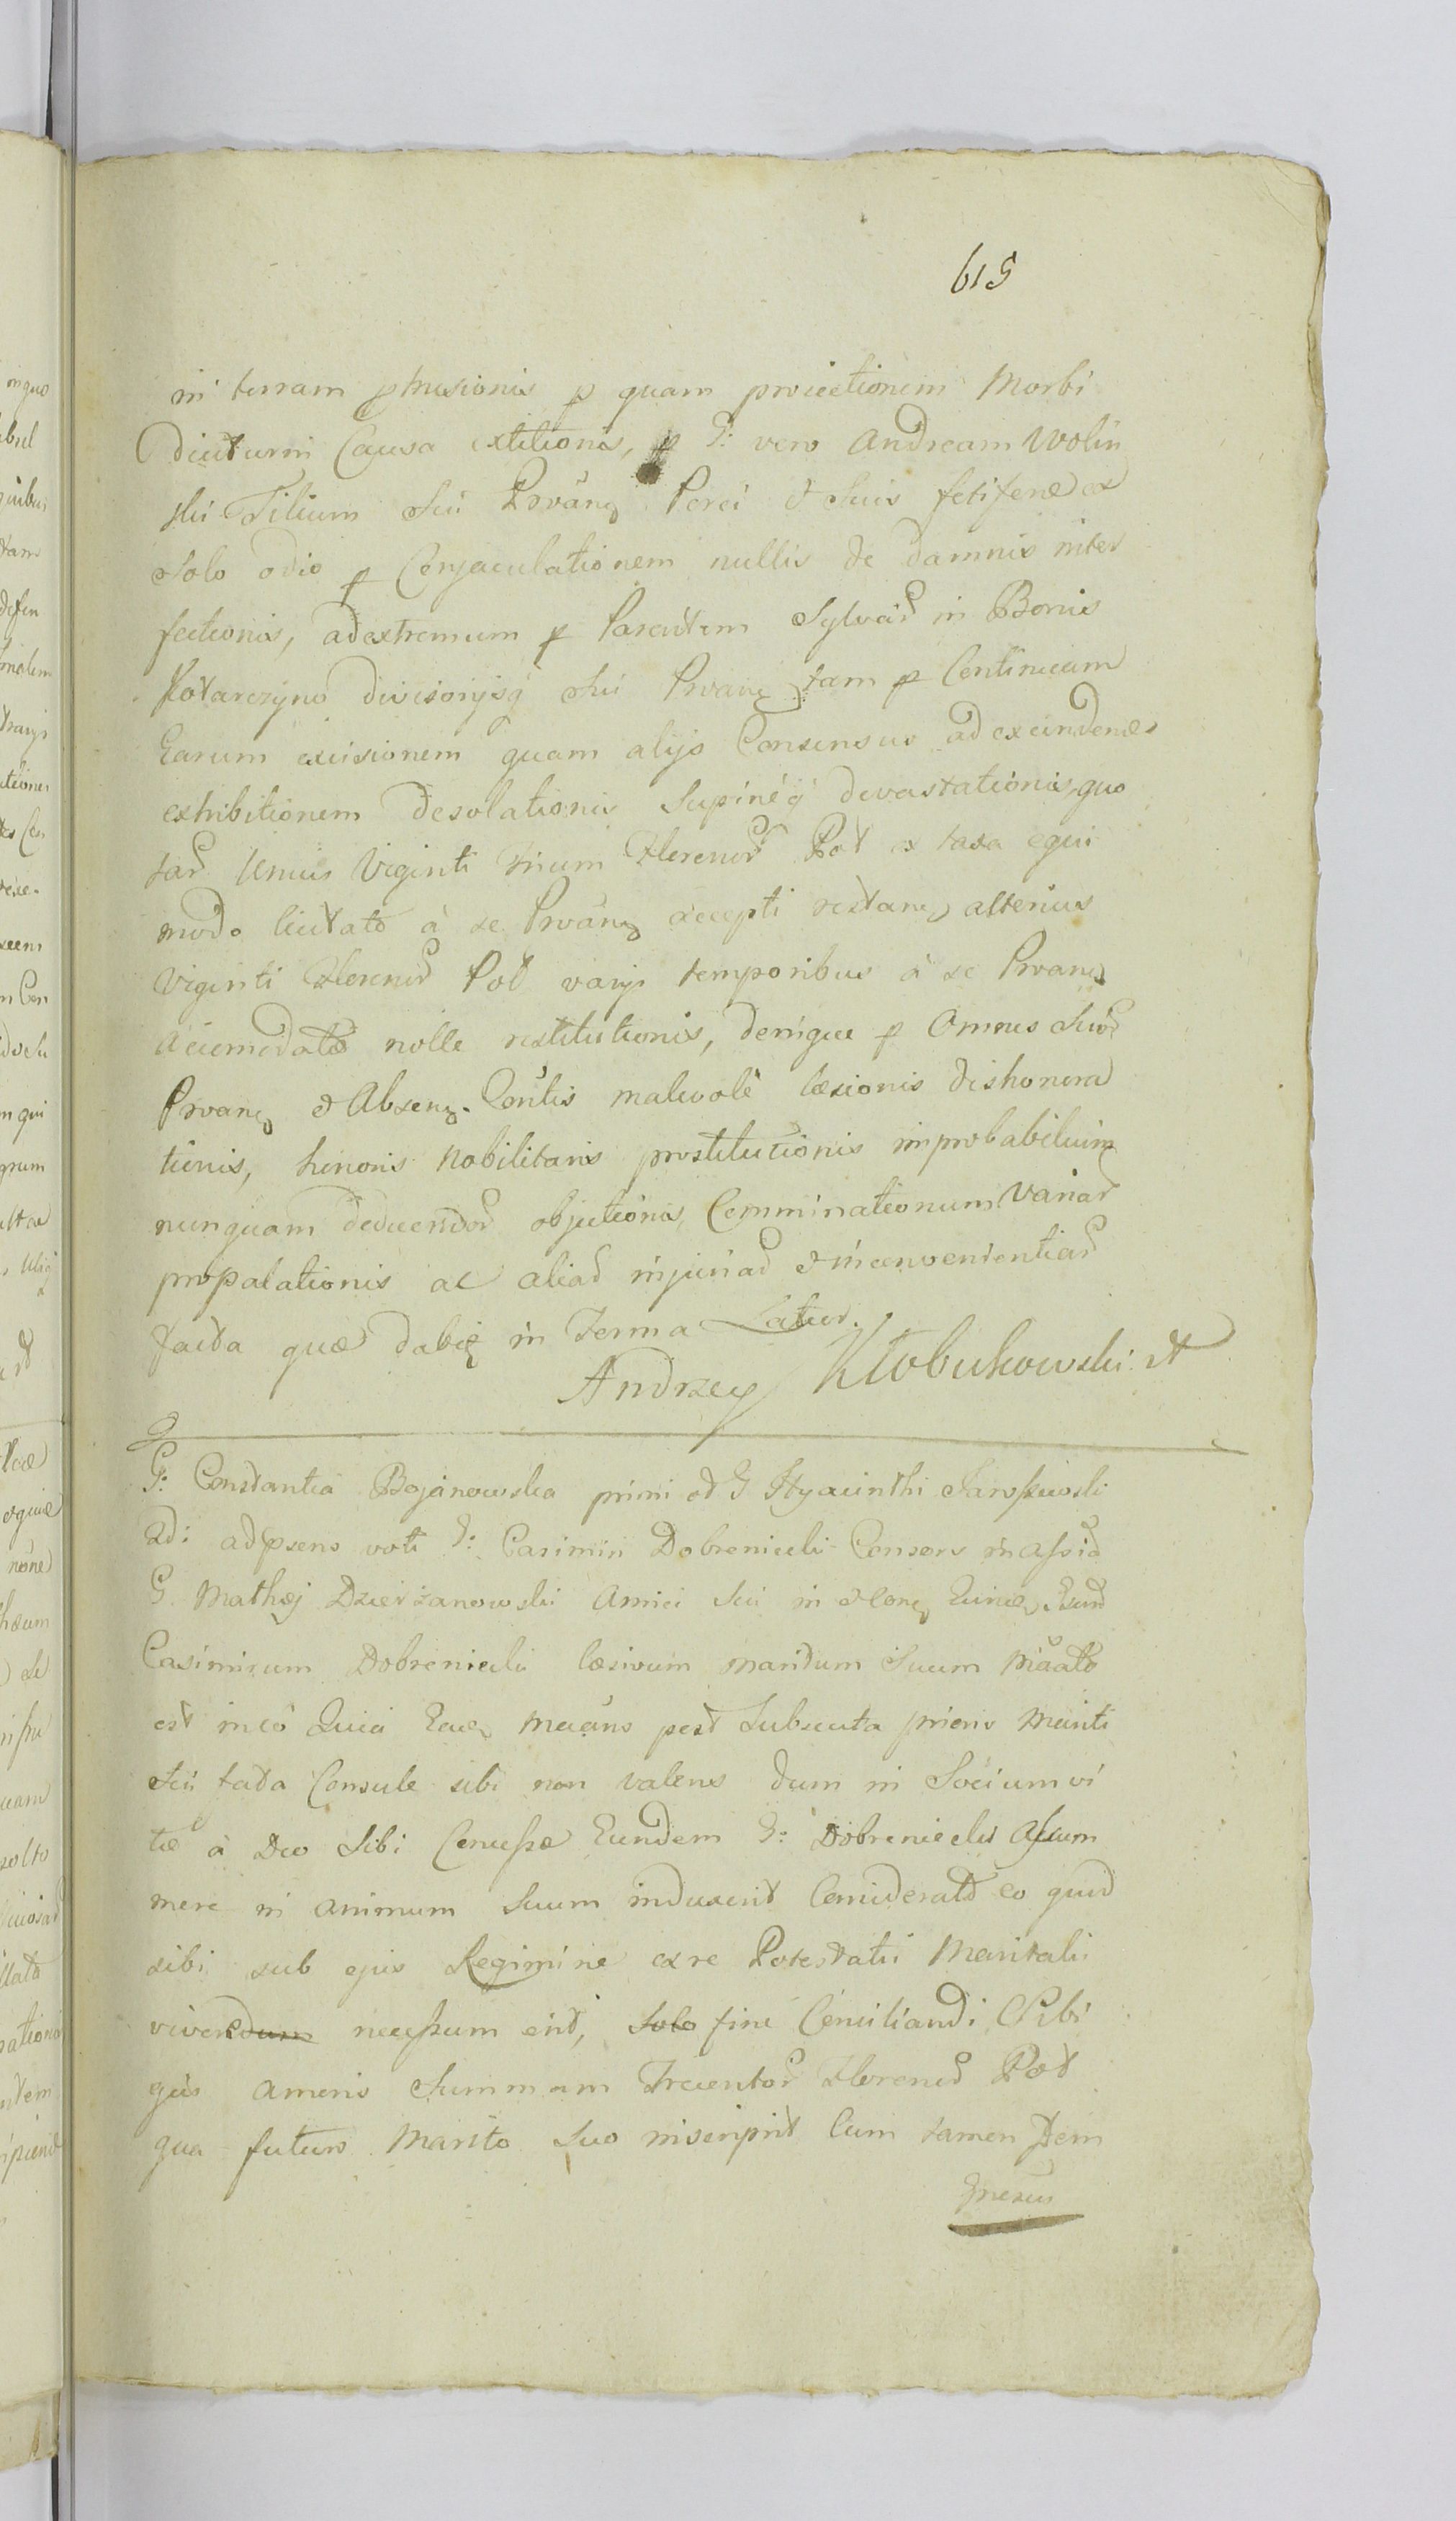 615
in terram ptrusionis p quam proiectionem Morbi
diuturni Causa extitionis, p G: vero Andream Wolin
ski Filium Sui Prváng Porci & Suis fetifene ex
Solo odio p Conjaculationem nullis de damnis inter
fectionis, ad extremum p Parentem Sylvar in Bonis
Kotarczyno divisorijsq Sui Prvang tam p Continuam
Earum excisionem quam alijs Consensus ad excindend
exhibitionem desolationis Supineq devastationis, quo
rar Unius Viginti trium Florenor Pol ex taxa equi
modo licitato à se Prváng accepti restang alterius
Viginti Florenor Pol varijs temporibus à se Prvang
accomodato nolle restitutionis, denique p Omnes Suor
Prvang & Abseng. Conlis malevole læsionis dishonora
tionis, honoris Nobilitaris prostitutionis improbabilium
nunquam deducendor objectionis, Comminationum Variar
propalationis ac aliar injuriar & inconvenientiar
facta quæ dabig in Termo Latius.
Andrzey Kłobukowski
G: Constantia Bojanowska primi ol G Hyacinthi
2di ad psens voti G: Casimiri Dobrenicki Consors in assia
G Mathej Dzierzanowski Amici Sui in & Cong Eund
Casimirum Dobrenicki læsivum maritum Suum
est in eo Quia Eaq post Subsecuta prioris Mariti
Sui fata Consule sibi non valens dum in Socium vi
tæ à Deo Sibi Concessæ Eundem G: Dobrenicki Assum
mere in animum Suum induxerit Considerato eo quid
sibi sub ejus Regimine ex re Potestatis Maritalis
vivendum necessum erit, Solo fine Conciliandi Sibi
ejus Amoris Summam Trecentor Florenor Pol
qua futuro Marito Suo inscripsit Cum tamen Idem